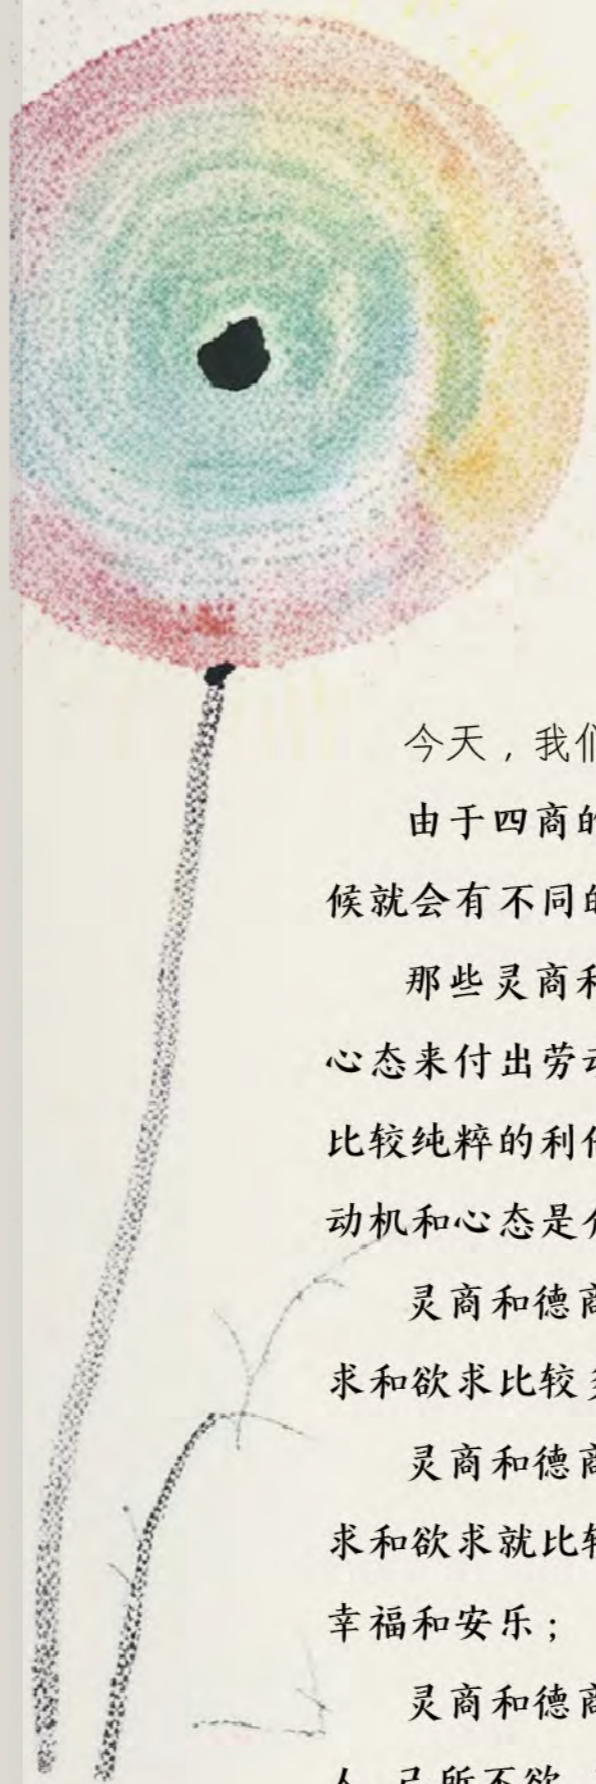 今天，我们
由于四商的
候就会有不同的
那些灵商和
心态来付出劳动
比较纯粹的利他
动机和心态是介
灵商和德商
求和欲求比较多
灵商和德商
求和欲求就比较
幸福和安乐；
灵商和德商
人，己所不欲，